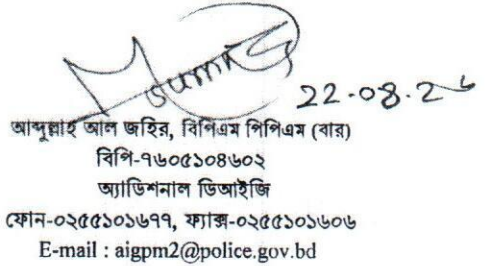 22-08-2৬
আব্দুল্লাহ আল জহির, বিপিএম পিপিএম (বার)
বিপি-৭৬০৫১০৪৬০২
অ্যাডিশনাল ডিআইজি
ফোন-০২৫৫১০১৬৭৭, ফ্যাক্স-০২৫৫১০১৬০৬
E-mail : aigpm2@police.gov.bd